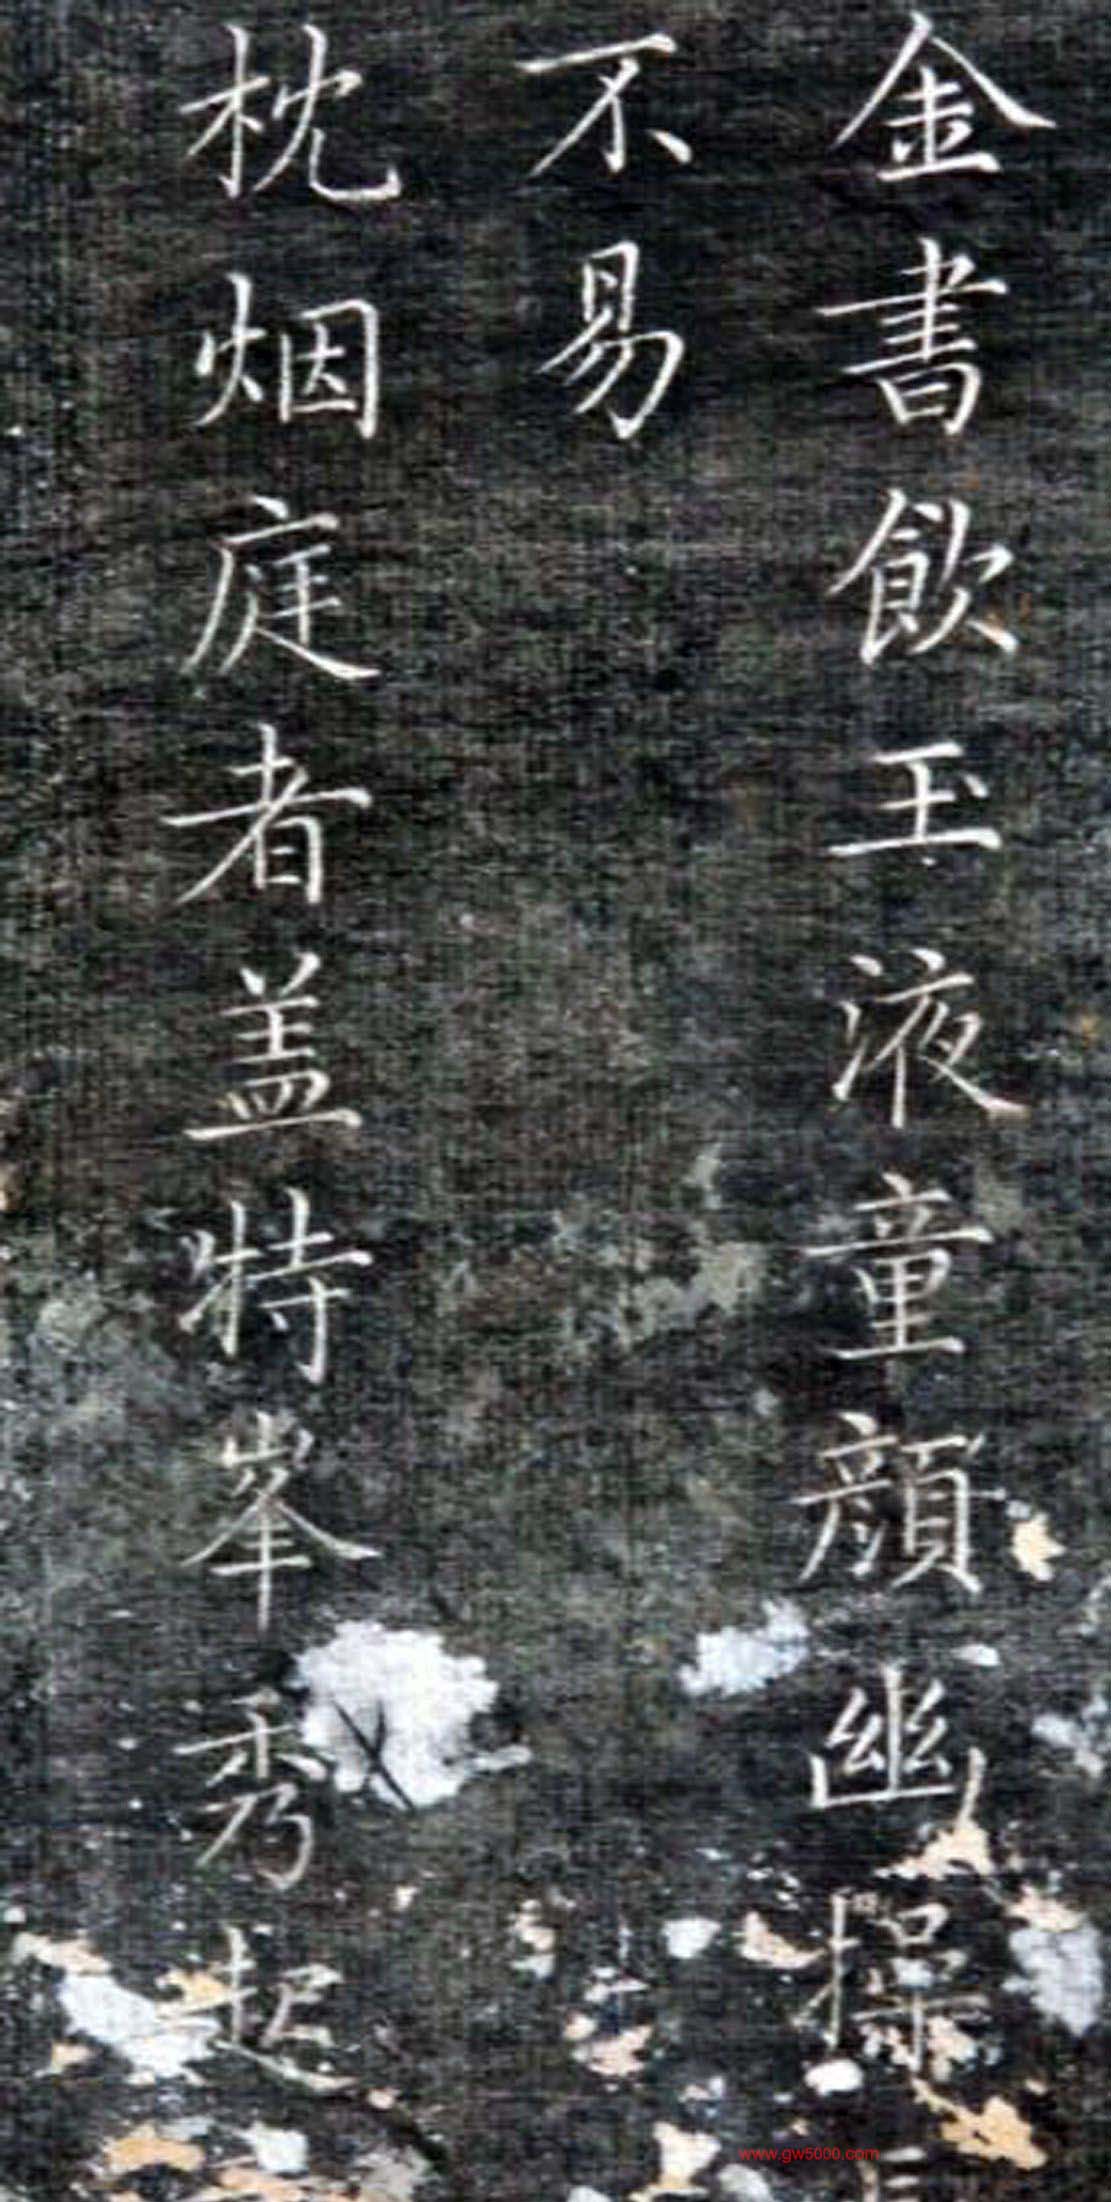 金書飲玉液童顔幽操
不易
枕烟庭者盖特峯秀起
www.gw5000.com